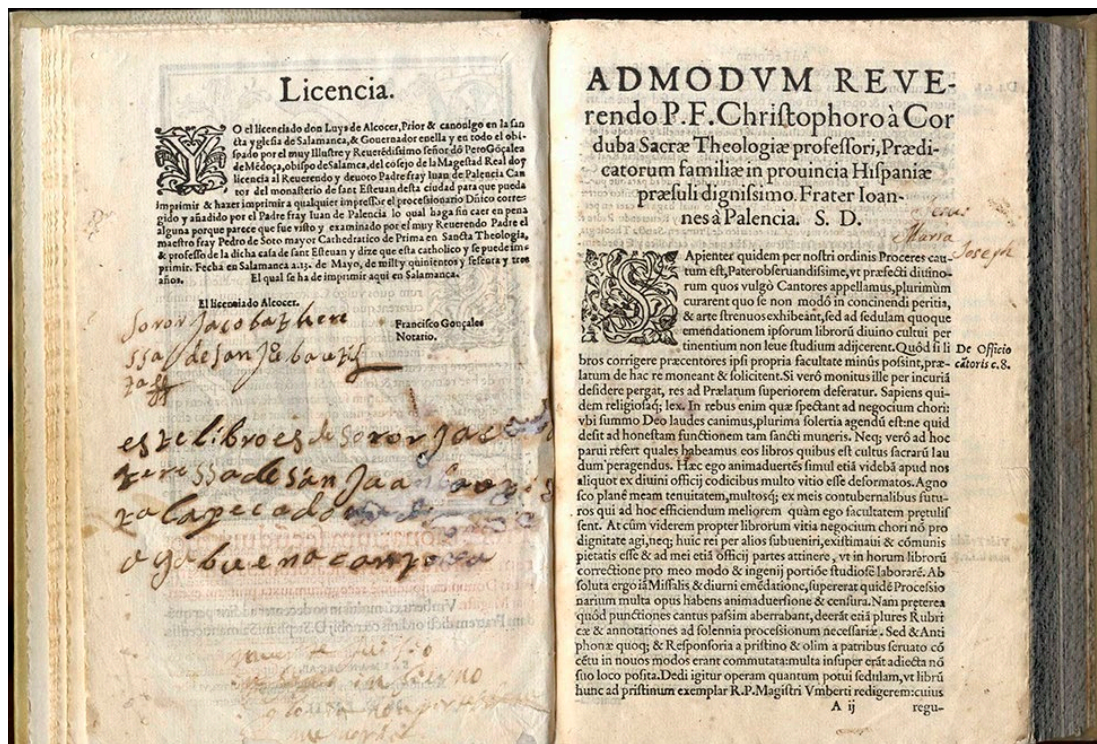 Licencia.
YO el licenciado don Luys de Alcocer, Prior & canonigo en la san
cta yglesia de Salamanca, & Gouernador enella y en todo el obi-
spado por el muy Illustre y Reuerēdissimo señor dō Pero Gōçalez
de Mēdoça, obispo de Salamāca, del cōsejo de la Magestad Real doy
licencia al Reuerendo y deuoto Padre fray Iuan de Palencia Can
tor del monasterio de sant Esteuan desta ciudad para que pueda
imprimir & hazer imprimir a qualquier impressor el processionario Dñico corre-
gido y añadido por el Padre fray Iuan de Palencia lo qual haga sin caer en pena
alguna porque parece que fue visto y examinado por el muy Reuerendo Padre el
maestro fray Pedro de Soto mayor Cathedratico de Prima en Sancta Theologia,
& professo de la dicha casa de sant Esteuan y dize que esta catholico y se puede im-
primir. Fecha en Salamanca a.13. de Mayo, de mil & quinientos y sesenta y tres
años. El qual se ha de imprimir aqui en Salamanca.
El licenciado Alcocer.
Francisco Gonçales
Notario.
soror Jacoba there
ssa de san Juº bautis
ta
este libro es de soror Jaco
teressa de san Juan
ta la pecado
ADMODVM REVE-
rendo P.F. Christophoro à Cor
duba Sacræ Theologiæ professori, Prædi-
catorum familiæ in prouincia Hispaniæ
præsuli dignissimo. Frater Ioan-
nes à Palencia. S. D.
Maria
Joseph
SApienter quidem per nostri ordinis Proceres cau-
tum est, Pater obseruandissime, vt præfecti diuino-
rum quos vulgò Cantores appellamus, plurimùm
curarent quo se non modò in concinendi peritia,
& arte strenuos exhibeant, sed ad sedulam quoque
emendationem ipsorum librorū diuino cultui per
tinentium non leue studium adijcerent. Quôd si li
De Officio
cātoris c.8.
bros corrigere præcentores ipsi propria facultate minùs possint, præ-
latum de hac re moneant & solicitent. Si verô monitus ille per incuriā
desidere pergat, res ad Prælatum superiorem deferatur. Sapiens qui-
dem religiosaq; lex. In rebus enim quæ spectant ad negocium chori:
vbi summo Deo laudes canimus, plurima solertia agendū est: ne quid
desit ad honestam functionem tam sancti muneris. Neq; verô ad hoc
parui refert quales habeamus eos libros quibus est cultus sacrarū lau
dum peragendus. Hæc ego animaduertēs simul etiā videbā apud nos
aliquot ex diuini officij codicibus multo vitio esse deformatos. Agno
sco planê meam tenuitatem, multosq; ex meis contubernalibus futu-
ros qui ad hoc efficiendum meliorem quàm ego facultatem prętulis
sent. At cùm viderem propter librorum vitia negocium chori nō pro
dignitate agi, neq; huic rei per alios subueniri, existimaui & cōmunis
pietatis esse & ad mei etiā officij partes attinere, vt in horum librorū
correctione pro meo modo & ingenij portiōe studiosè laborarē. Ab
soluta ergo iā Missalis & diurni emēdatione, supererat quidē Processio
narium multa opus habens animaduersione & censura. Nam preterea
quòd punctiones cantus passim aberrabant, deerāt etiā plures Rubri
cæ & annotationes ad solennia processionum necessariæ. Sed & Anti
phonæ quoq; & Responsoria a pristino & olim a patribus seruato cō
cētu in nouos modos erant commutata: multa insuper erāt adiecta nō
suo loco posita. Dedi igitur operam quantum potui sedulam, vt librū
hunc ad pristinum exemplar R.P. Magistri Vmberti redigerem: cuius
A ij
regu-